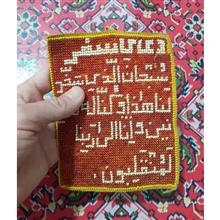 دعای سفر
سبحان الذی سخر
لنا هذا و ما کنا له
مقرنین و انا الی ربنا
لمنقلبون